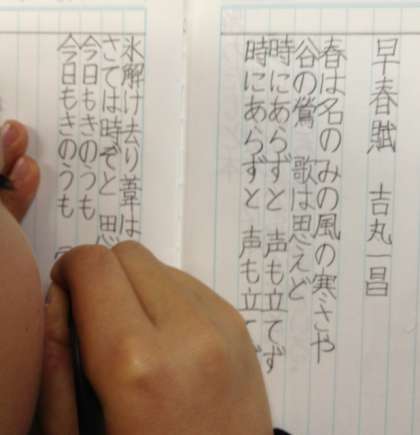 早春賦　吉丸一昌
春は名のみの風の寒さや
谷の鶯　歌は思えど
時にあらずと　声も立てず
時にあらずと　声も立てず
氷解け去り葦は
さては時ぞと　思
今日もきのうも
今日もきのうも